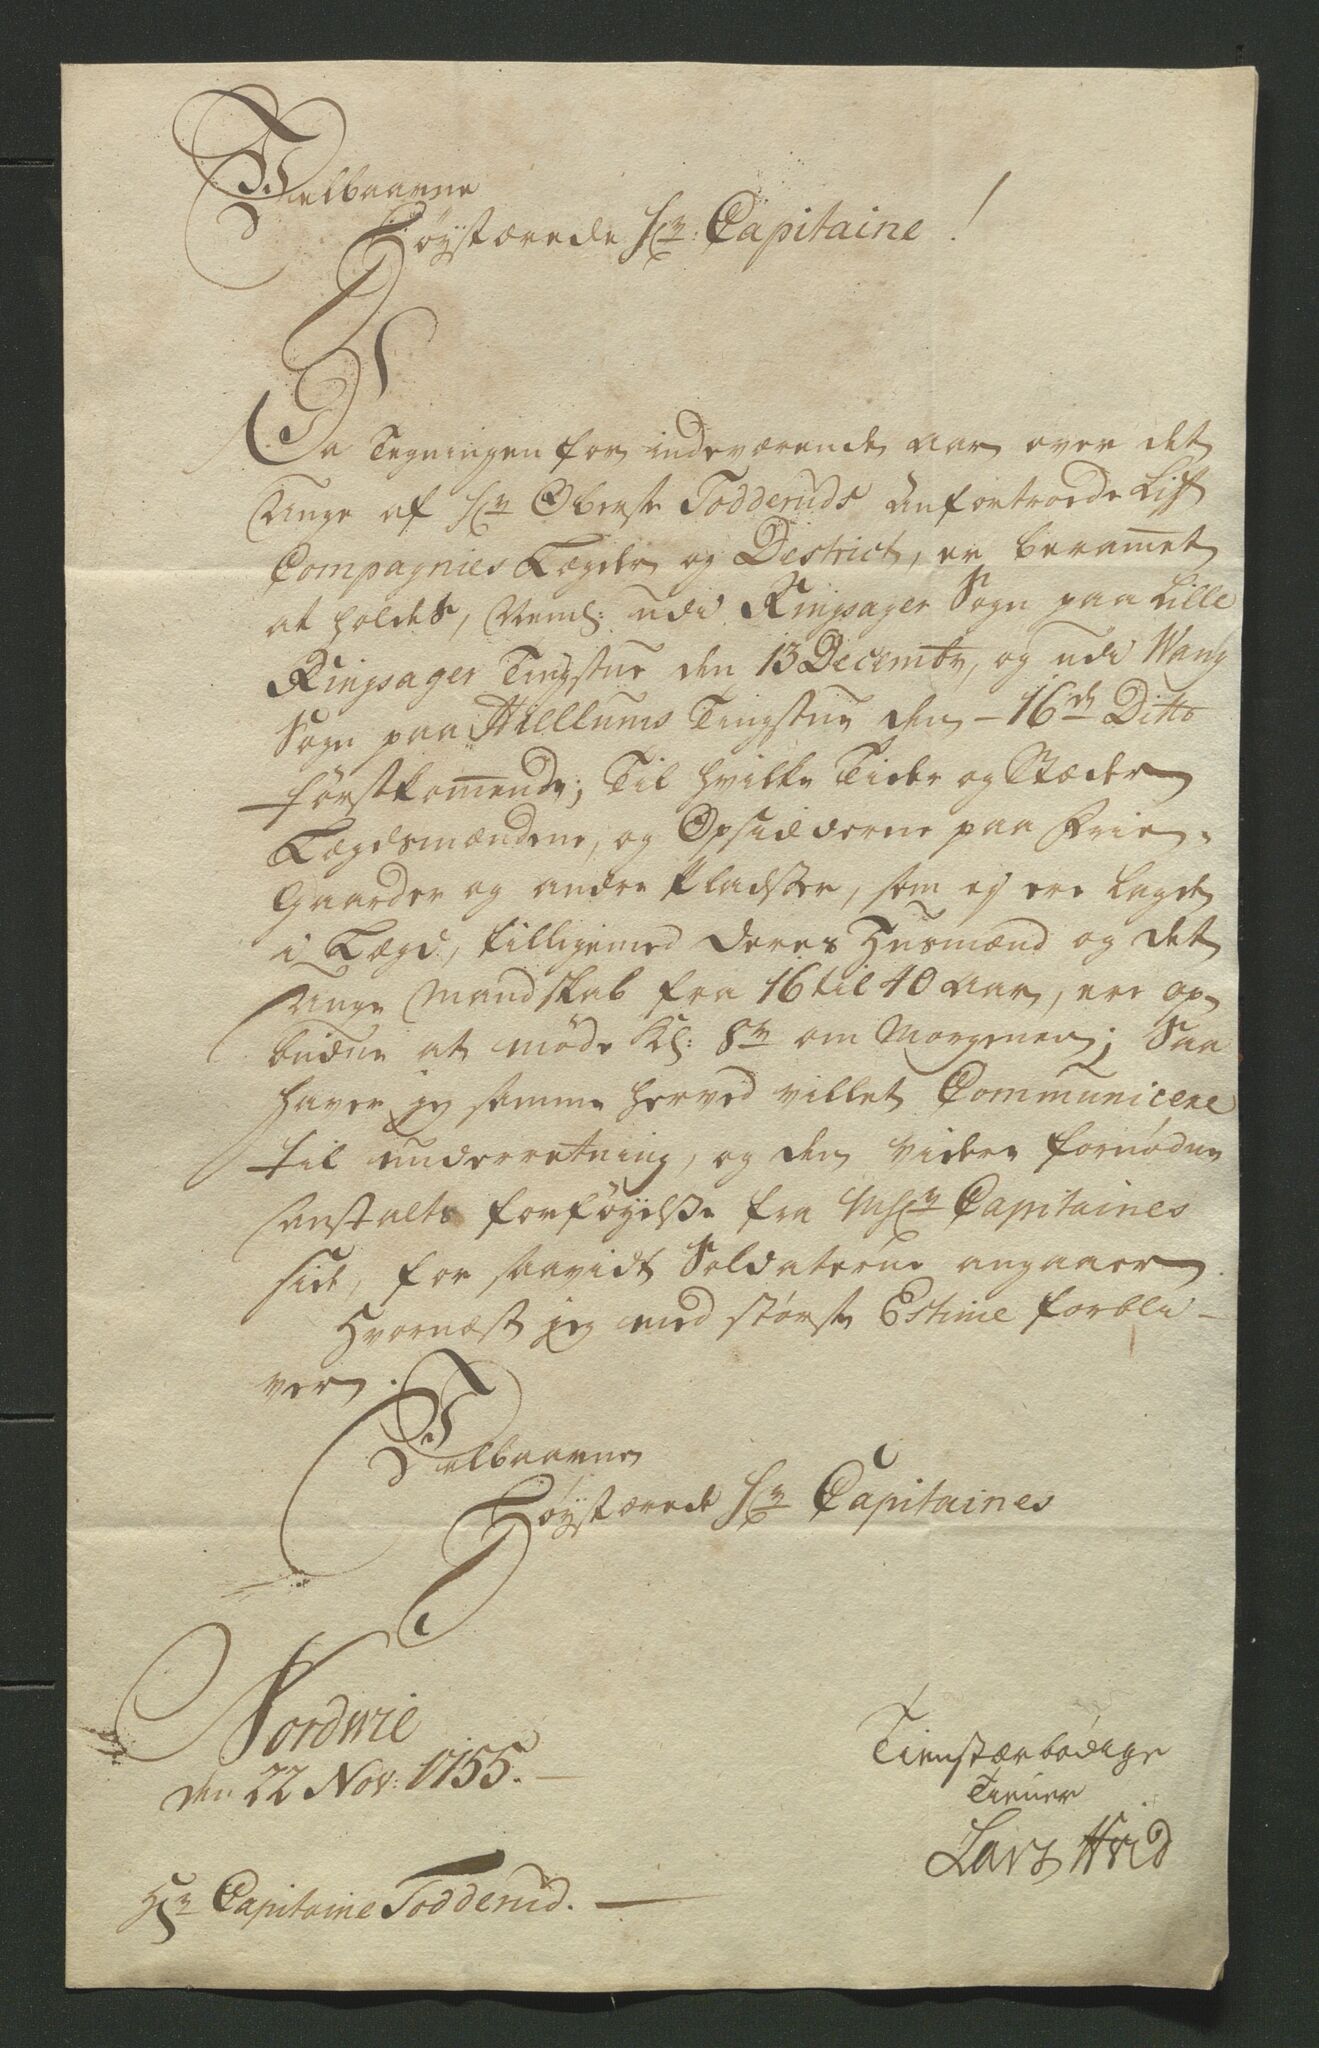 Velbaarne
Høystærede Hr: Capitaine!
Da Tegningen for indeværende Aar over det
Unge af Hr Oberste Todderuds Anfortroede Lif
Compagnies Lægder og Destrict, er beramet
at holdes, Neml: udi Ringsager Sogn paa Lille
Ringsager Tingstue den 13 Decembr, og udi Wang
Sogn paa Hiellums Tingstue den 16de Ditto
førstkomende; Til hvilke Tider og Stæder
Lægdsmændene, og Opsidderne paa Frie-
Gaarder og andre Pladser, som ej ere lagde
i Lægd, tilligemed deres Husmænd og det
Unge Mandskab fra 16 til 40 Aar, ere op-
budne at møde Kl: 8te om Morgenen; Saa
haver jeg samme herved villet Communicere
til underretning, og den videre fornødne
Anstalts forføyelse fra Hr Capitaines
side, for saavidt Soldaterne angaaer.
Hvornæst jeg med største Estime forbli-
ver.
Velbaarne
Høystærede Hr Capitaines
Nordvie
den 22 Nov: 1755.
Tienstærbødige
Tiener
Lars Hvid
Hr Capitaine Todderud.